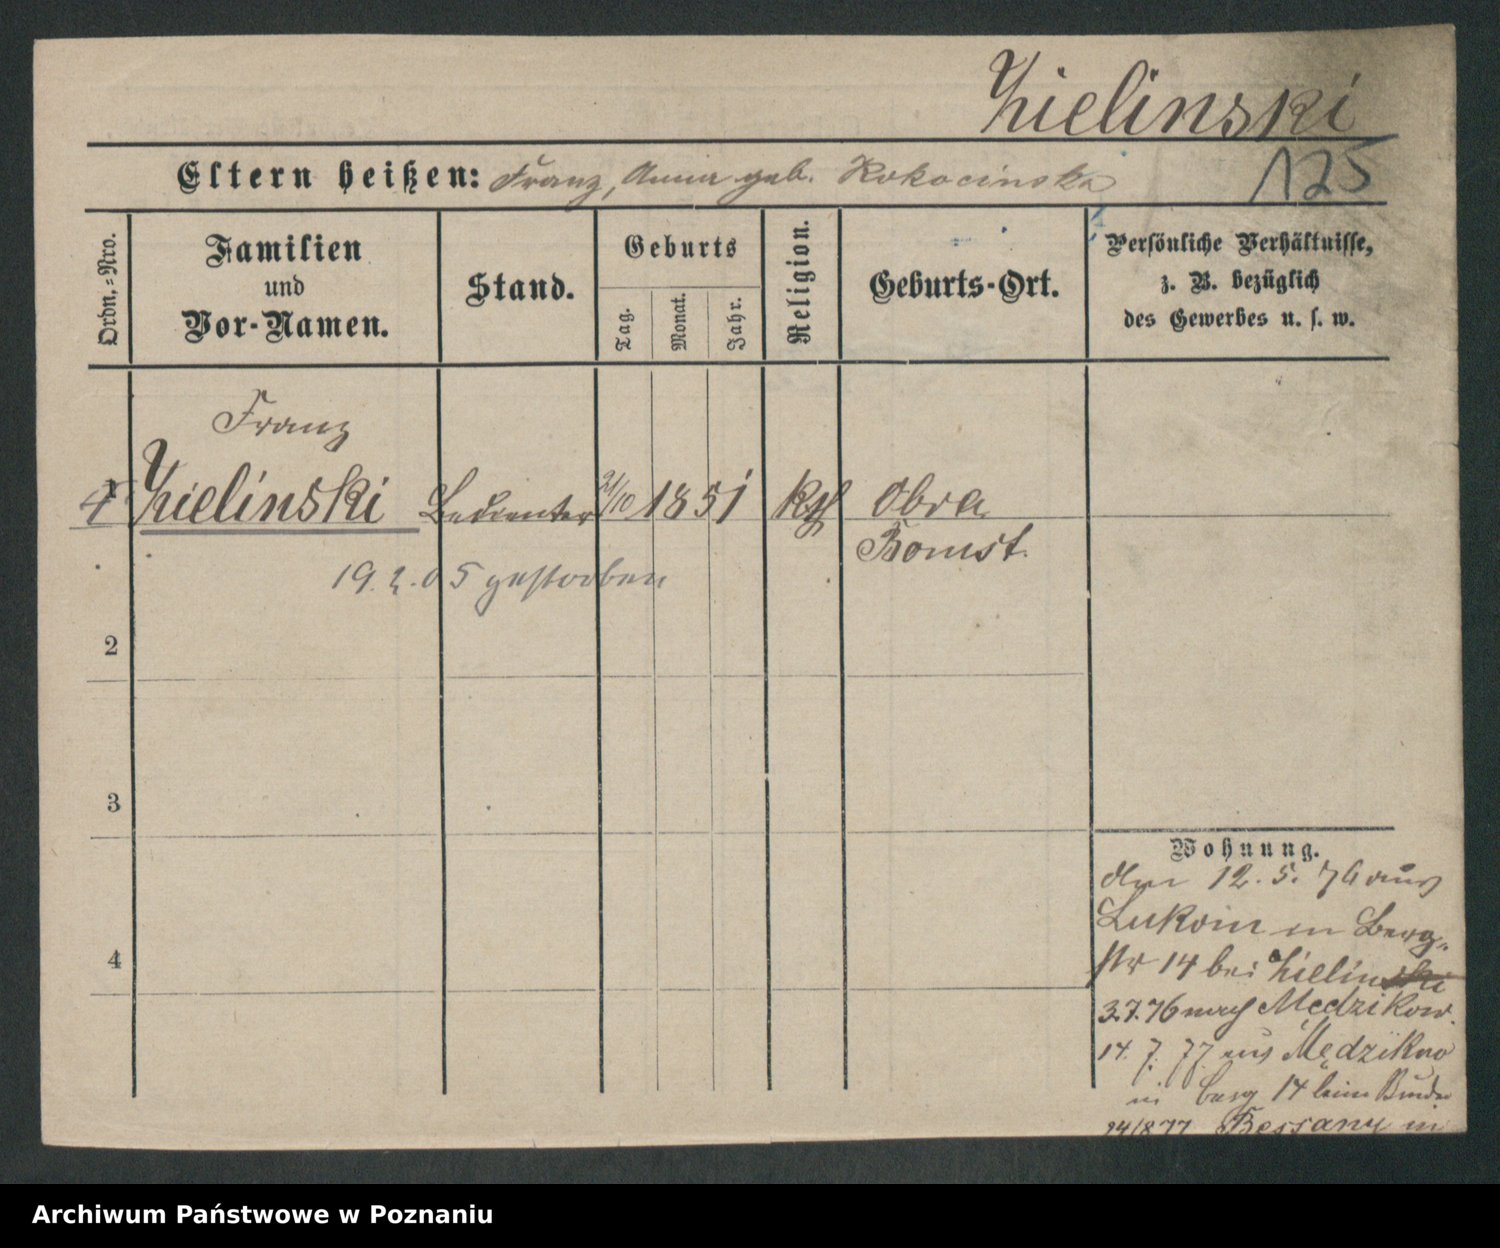 Zielinski
Eltern heißen: Franz, Anna geb. Rokocinska
125
Ordn.-Nro.
Familien
und
Vor-Namen.
Stand.
Geburts
Tag.
Monat.
Jahr.
Religion.
Geburts-Ort.
Persönliche Verhältnisse,
z. B. bezüglich
des Gewerbes u. s. w.
Franz
1 Zielinski Bedienter 21/10 1851 kth Obra
Bomst.
19.2.05 gestorben
2
3
4
Wohnung.
den 12. 5. 76 aus
Lukom in Berg-
str 14 bei Zielinski
3.7.76 nach Medzikow.
14. 7. 77 aus Mędzikow
in Berg 14 beim Bruder
24/8 77 in
Archiwum Państwowe w Poznaniu